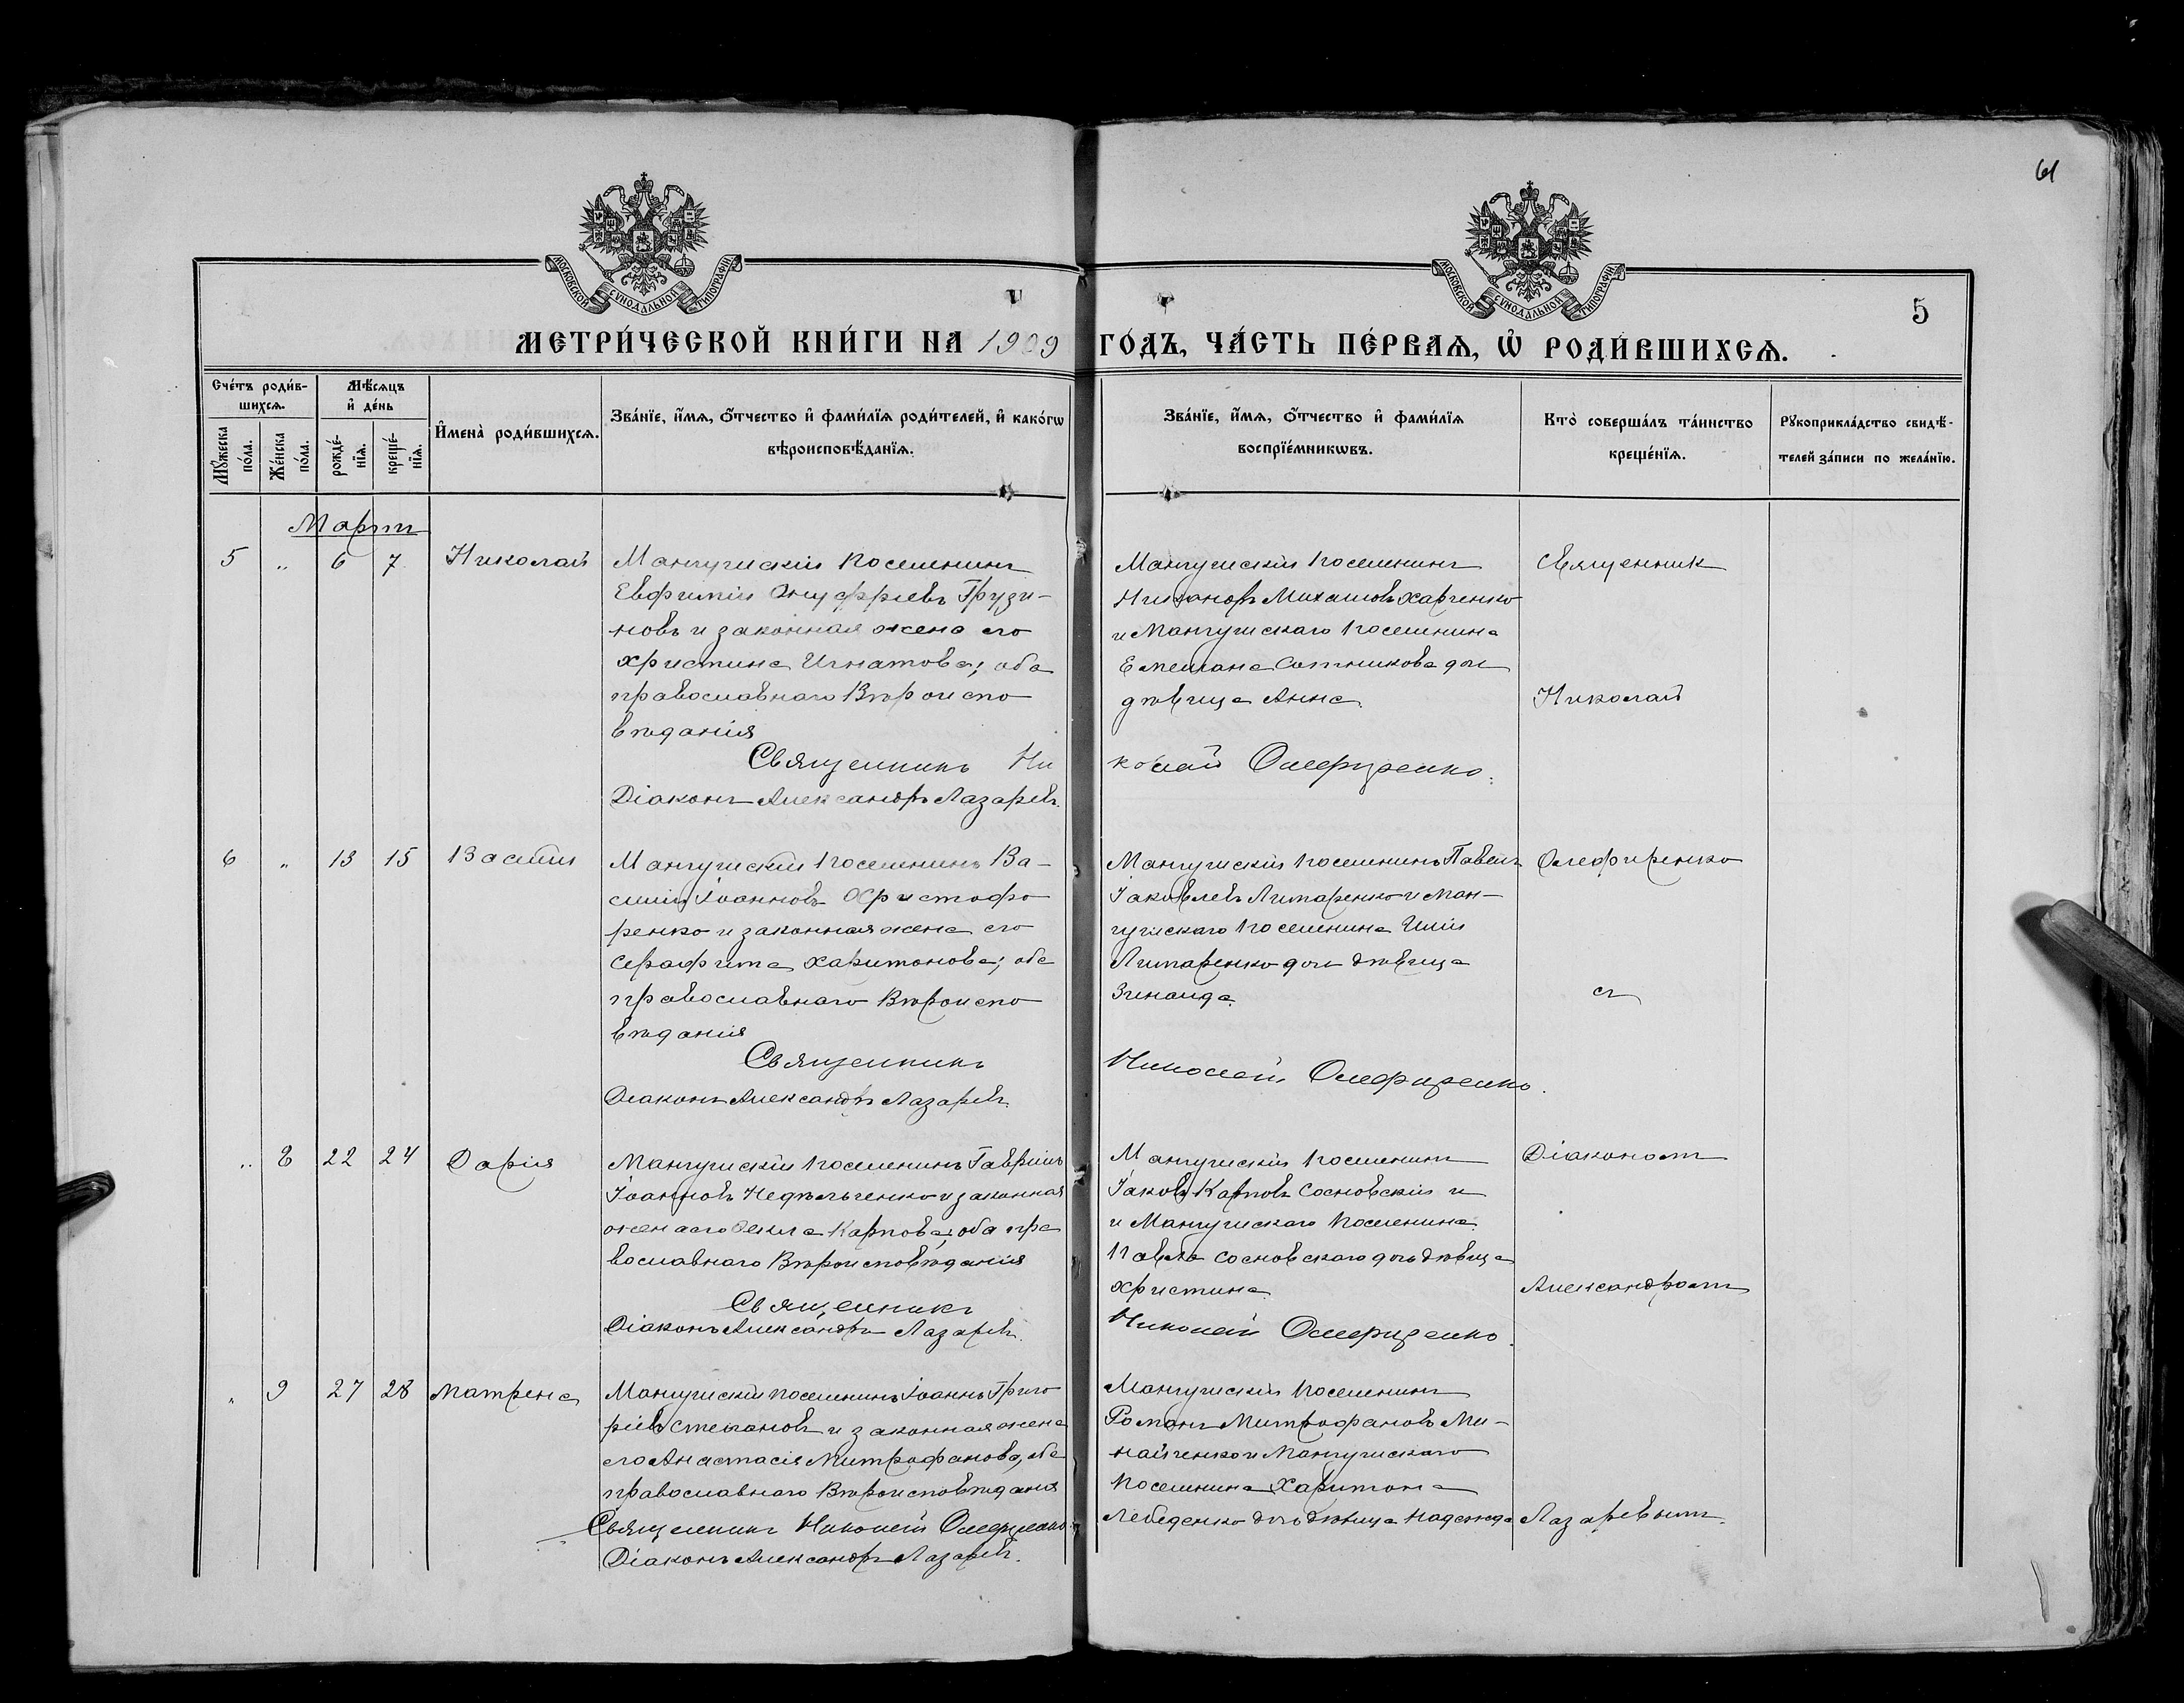 61
МОСКОВСКОЙ СУНОДАЛЬНОЙ ТИПОГРАФІИ
МОСКОВСКОЙ СУНОДАЛЬНОЙ ТИПОГРАФІИ
5
МЕТРИ́ЧЕСКОЙ КНИ́ГИ НА 1909
ГОДЪ, ЧА́СТЬ ПЕ́РВАѦ, Ѡ РОДИ́ВШИХСѦ.
Сче́тъ роди́в-
шихсѧ.
Мѣ́сѧцъ
и҆ де́нь
Мꙋ́жеска
по́ла.
Же́нска
по́ла.
рожде́-
нїѧ.
креще́-
нїѧ.
И҆мена̀ роди́вшихсѧ.
Зва́нїе, и҆́мѧ, о҆́тчество и҆ фами́лїѧ роди́телей, и҆ како́гѡ
вѣроисповѣ́данїѧ.
Зва́нїе, и҆́мѧ, о҆́тчество и҆ фами́лїѧ
воспрїе́мникѡвъ.
Кто̀ соверша́лъ та́инство
креще́нїѧ.
Рꙋкоприкла́дство свидѣ́-
телей за́писи по жела́нїю.
Мартъ
5 " 6 7 Николай
Мангушскій поселянинъ
Евфимій Онуфріевъ Грузи-
новъ и законная жена его
Христина Игнатова; оба
православнаго Вѣроиспо
вѣданія
Священникъ Ни
Діаконъ Александръ Лазаревъ.
Мангушскій поселянинъ
Никаноръ Михаиловъ Харченко
и Мангушскаго поселянина
Емелiана Сотникова дочь
дѣвица Анна.
колай Олефиренко.
Священник
Николай
6 " 13 15 Василій
Мангушскій поселянинъ Ва-
силій Іоанновъ Христофо
ренко и законная жена его
Серафима Харитонова; оба
православнаго Вѣроиспо
вѣданія
Священникъ
Діаконъ Александръ Лазаревъ.
Мангушскій поселянинъ Павелъ
Іаковлевъ Литаренко и Ман-
гушскаго поселянина Иліи
Литаренко дочь дѣвица
Зинаида.
Николай Олефиренко.
Олефиренко
съ
" 8 22 24 Дарія
Мангушскій поселянинъ Гавріилъ
Іоанновъ Недѣльченко и законная
жена его Ѳекла Карпова; оба пра
вославнаго Вѣроисповѣданія
Священникъ
Діаконъ Александръ Лазаревъ.
Мангушскій поселянинъ
Іаковъ Карповъ Сосновскій и
и Мангушскаго поселянина
Павла Сосновскаго дочь дѣвица
Христина.
Николай Олефиренко.
Діакономъ
Александромъ
" 9 27 28 Матрена
Мангушскій поселянинъ Іоаннъ Григо
ріевъ Степановъ и законная жена
его Анастасія Митрофанова, оба
православнаго Вѣроисповѣданія
Священникъ Николай Олефиренко.
Діаконъ Александръ Лазаревъ.
Мангушскій поселянинъ
Романъ Митрофановъ Ми-
найченко и Мангушскаго
поселянина Харитона
Лебеденко дочь дѣвица Надежда
Лазаревымъ.